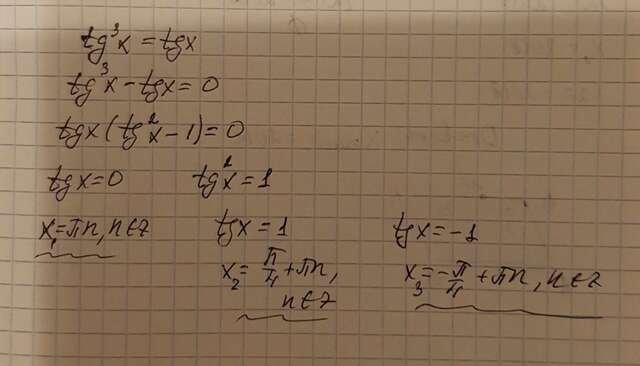 tg³x = tgx
tg³x - tgx = 0
tgx(tg²x - 1) = 0
tgx = 0 tg²x = 1
x₁ = πn, n∈Z tgx = 1 tgx = -1
x₂ = π/4 + πn, x₃ = -π/4 + πn, n∈Z
n∈Z